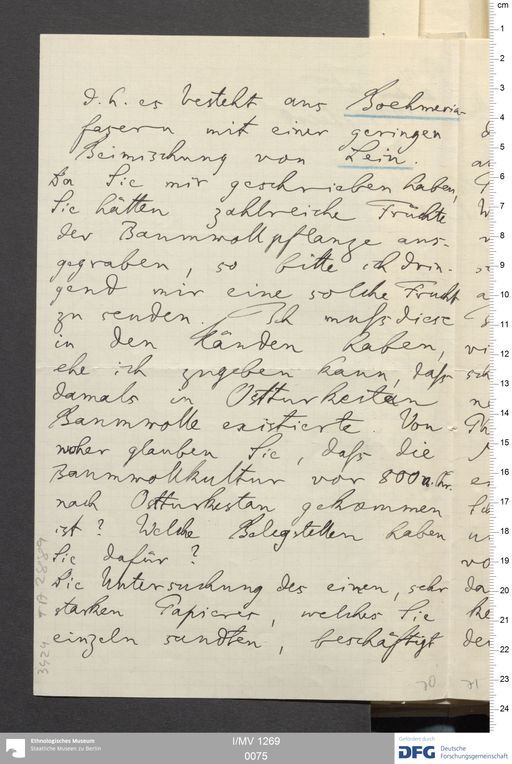 d. h. es besteht aus Boehmeria-
fasern mit einer geringen
Beimischung von Lein.
Da Sie mir geschrieben haben,
Sie hätten zahlreiche Früchte
der Baumwollpflanze aus-
gegraben, so bitte ich drin-
gend mir eine solche Frucht
zu senden. Ich muß diese
in den Händen haben,
ehe ich zugeben kann, daß
damals in Ostturkestan
Baumwolle existierte. Von
woher glauben Sie, daß die
Baumwollkultur vor 800 n. Chr.
nach Ostturkestan gekommen
ist? Welche Belegstellen haben
Sie dafür?
Die Untersuchung des einen, sehr
starken Papieres, welches Sie
einzeln sandten, beschäftigt
TA 2889
3424
70
71
cm
1
2
3
4
5
6
7
8
9
10
11
12
13
14
15
16
17
18
19
20
21
22
23
24
Ethnologisches Museum
Staatliche Museen zu Berlin
I/MV 1269
0075
Gefördert durch
DFG Deutsche
Forschungsgemeinschaft